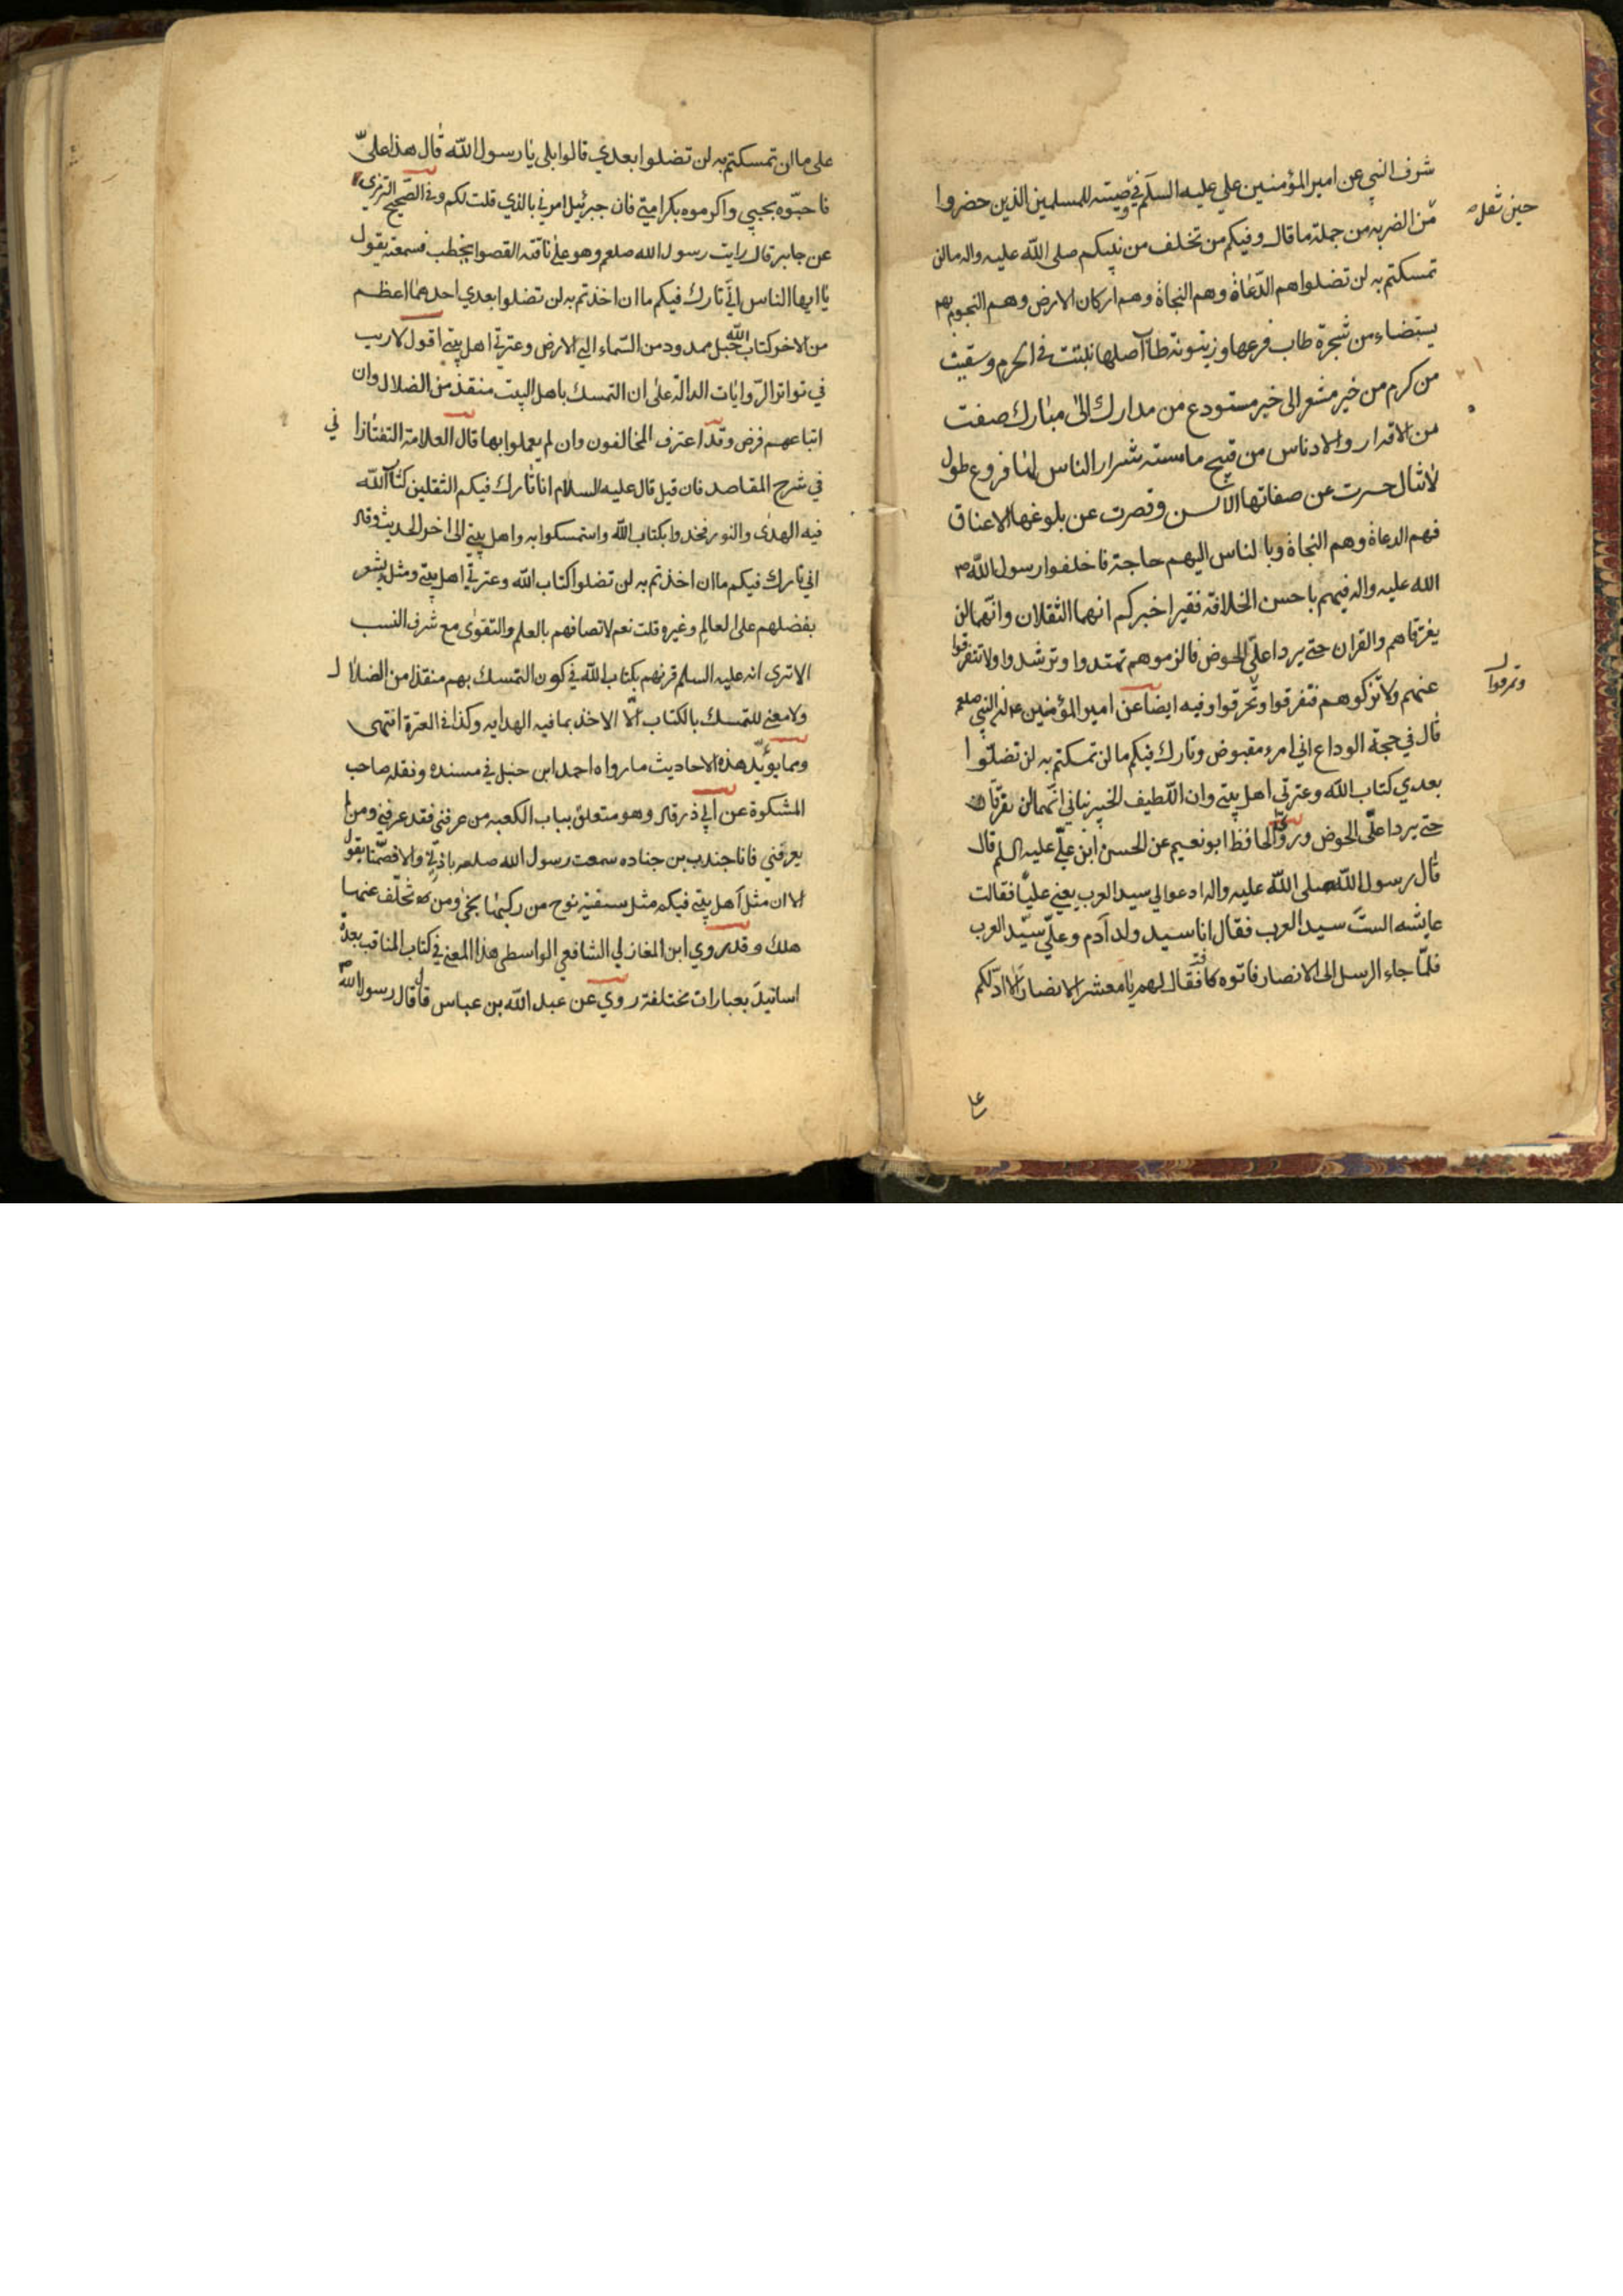 شرف النبي عن امير المؤمنين علي عليه السلم في وصيته للمسلمين الذين حضروا
حين ثقل
من الضربه من جملة ما قال وفيكم من تخلف من نبيكم صلى الله عليه واله ما لن
تمسكتم به لن تضلوا هم الدعاة وهم النجاة وهم اركان الارض وهم النجوم بهم
يستضاء من شجرة طاب فرعها وزيتونة طاب اصلها نبتت في الحرم وسقيت
من كرم من خير مشعر الى خير مستودع من مدارك الى مبارك صفت
من الاقدار والادناس من قبيح ما مسته شرار الناس لها فروع طول
لا تنال حسرت عن صفاتها الالسن وقصرت عن بلوغها الاعناق
فهم الدعاة وهم النجاة وبالناس اليهم حاجة فاخلفوا رسول الله ص
الله عليه واله فيهم باحسن الخلافة فقد اخبركم انهما الثقلان وانهما لن
يفترقا هم والقران حتى يردا علي الحوض فالزموهم تهتدوا وترشدوا ولا تتفرقوا
عنهم ولا تتركوهم فتفرقوا وتحرقوا وفيه ايضا عن امير المؤمنين ع ان النبي صلعم
وتمرقوا ل
قال في حجة الوداع اني امرء مقبوض وتارك فيكم ما لن تمسكتم به لن تضلوا
بعدي كتاب الله وعترتي اهل بيتي وان اللطيف الخبير نباني انهما لن يفترقا
حتى يردا علي الحوض وروى الحافظ ابو نعيم عن الحسن ابن علي عليه السلم قال
قال رسول الله صلى الله عليه واله ادعوا لي سيد العرب يعني عليا فقالت
عايشه الست سيد العرب فقال انا سيد ولد آدم وعلي سيد العرب
فلما جاء ارسل الى الانصار فاتوه فقال لهم يا معشر الانصار الا ادلكم
على ما ان تمسكتم به لن تضلوا بعدي قالوا بلى يا رسول الله قال هذا علي
فاحبوه بحبي واكرموه بكرامتي فان جبرئيل امرني بالذي قلت لكم وفي الصحيح الترمذي
عن جابر قال رايت رسول الله صلعم وهو على ناقته القصوا يخطب فسمعته يقول
يا ايها الناس اني تارك فيكم ما ان اخذتم به لن تضلوا بعدي احدهما اعظم
من الاخر كتاب الله حبل ممدود من السماء الى الارض وعترتي اهل بيتي اقول لا ريب
في تواتر الروايات الدالة على ان التمسك باهل البيت منقذ من الضلال وان
اتباعهم فرض وقد اعترف المخالفون وان لم يعملوا بها قال العلامة التفتازاني
في شرح المقاصد فان قيل قال عليه السلام انا تارك فيكم الثقلين كتاب الله
فيه الهدى والنور فخذوا بكتاب الله واستمسكوا به واهل بيتي الى اخر الحديث وقال
اني تارك فيكم ما ان اخذتم به لن تضلوا كتاب الله وعترتي اهل بيتي ومثل يشعر
بفضلهم على العالم وغيره قلت نعم لاتصافهم بالعلم والتقوى مع شرف النسب
الا ترى انه عليه السلم قرنهم بكتاب الله في كون التمسك بهم منقذا من الضلال
ولا معنى للتمسك بالكتاب الا الاخذ بما فيه الهدايه وكذا في العترة انتهى
ومما يؤيد هذه الاحاديث ما رواه احمد ابن حنبل في مسنده ونقله صاحب
المشكوة عن ابي ذر قال وهو متعلق بباب الكعبه من عرفني فقد عرفني ومن لم
يعرفني فانا جندب بن جناده سمعت رسول الله صلعم باذني والا فصمتا يقول
الا ان مثل اهل بيتي فيكم مثل سفينة نوح من ركبها نجى ومن تخلف عنها
هلك وقد روي ابن المغازلي الشافعي الواسطي هذا المعنى في كتاب المناقب بعدة
اسانيد بعبارات مختلفة روي عن عبد الله بن عباس قال قال رسول الله ص